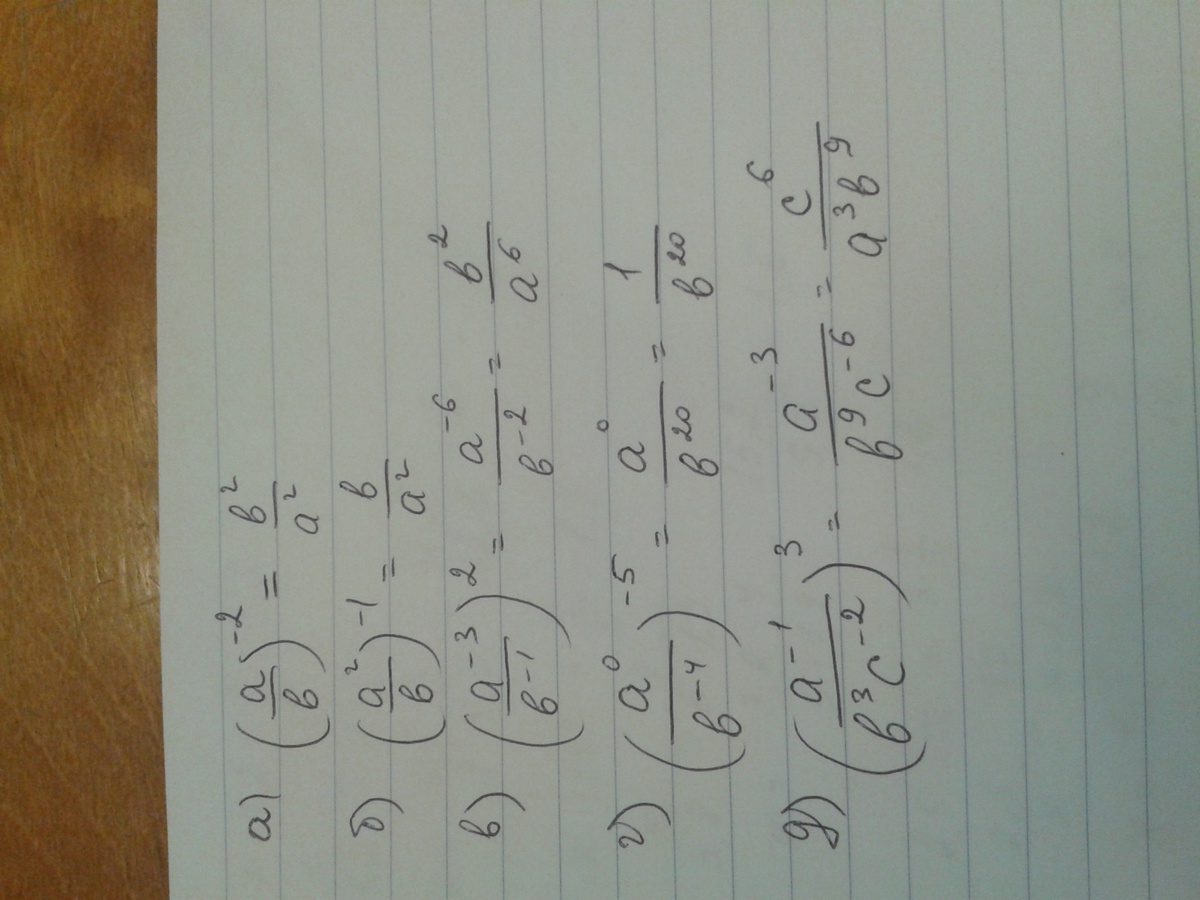 а) (a/b)⁻² = b²/a²
б) (a²/b)⁻¹ = b/a²
в) (a⁻³/b⁻¹)² = a⁻⁶/b⁻² = b²/a⁶
г) (a⁰/b⁻⁴)⁻⁵ = a⁰/b²⁰ = 1/b²⁰
д) (a⁻¹/b³c⁻²)³ = a⁻³/b⁹c⁻⁶ = c⁶/a³b⁹